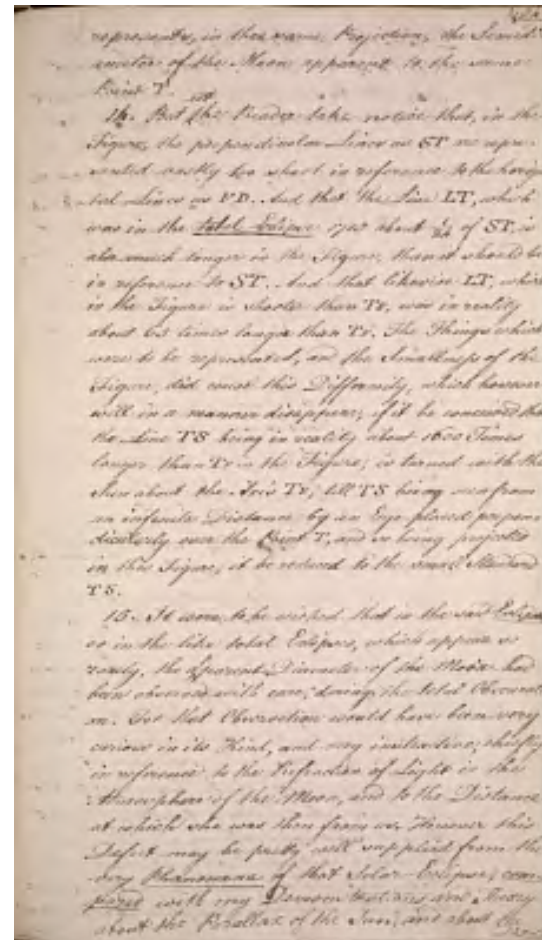 represents, in the same Projection, the Semidi-
ameter of the Moon apparent to the same
Point T.
14. But let the Reader take notice that, in the
Figure, the perpendicular Lines as ST are repre-
sented vastly too short in reference to the horizon-
tal Lines as VD. And that the Line LT, which
was in the total Eclipse about of ST, is
also much longer in the Figure, than it should be
in reference to ST. And that likewise LT, which
in the Figure is shorter than Tr, was in reality
about 63 times longer than Tr. The Things which
were to be represented, and the Smallness of the
Figure, did cause this Difformity, which however
will in a manner disappear; if it be conceived that
the Line TS being in reality about 1600 Times
longer than Tr in the Figure; is turned with the
Sun about the Axis Tr; till TS being seen from
an infinite Distance by an Eye placed perpen-
dicularly over the Point T, and so being projected
in this Figure, it be reduced to the small
TS.
15. It were to be wished that in the said Eclipse
or in the like total Eclipses, which appear so
rarely, the apparent Diameter of the Moon had
been observed with care, during the total Obscurati-
on. For that Observation would have been very
curious in its Kind, and very instructive; chiefly
in reference to the Refraction of Light in the
Atmosphere of the Moon, and to the Distance
at which she was then from us. However this
Defect may be pretty well supplied from the
very Phænomena of that Solar Eclipse, com-
pared with my Demonstrations and Theory
about the Parallax of the Sun, and about the